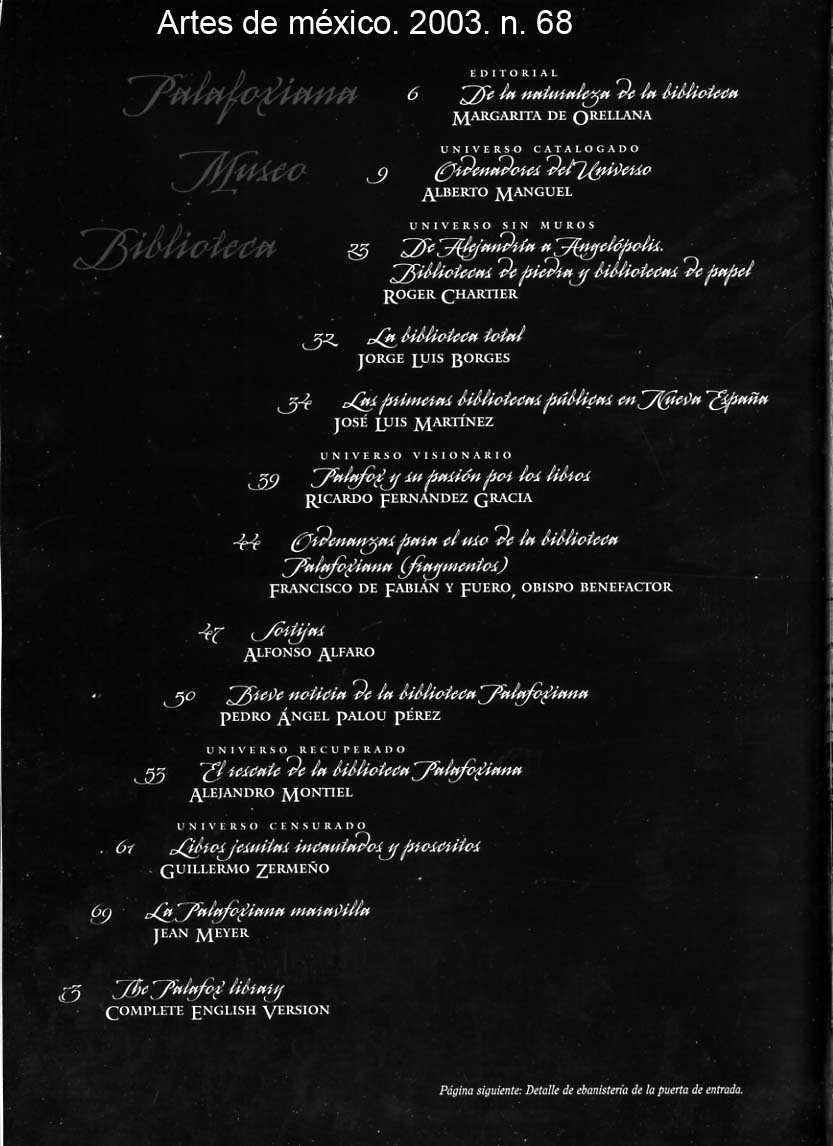 Artes de méxico. 2003. n. 68
Palafoxiana
Museo
Biblioteca
EDITORIAL
6 De la naturaleza de la biblioteca
MARGARITA DE ORELLANA
UNIVERSO CATALOGADO
9 Ordenadores del Universo
ALBERTO MANGUEL
UNIVERSO SIN MUROS
23 De Alejandría a Angelópolis.
Bibliotecas de piedra y bibliotecas de papel
ROGER CHARTIER
32 La biblioteca total
JORGE LUIS BORGES
34 Las primeras bibliotecas públicas en Nueva España
JOSÉ LUIS MARTÍNEZ
UNIVERSO VISIONARIO
39 Palafox y su pasión por los libros
RICARDO FERNÁNDEZ GRACIA
44 Ordenanzas para el uso de la biblioteca
Palafoxiana (fragmentos)
FRANCISCO DE FABIÁN Y FUERO, OBISPO BENEFACTOR
47 Sortijas
ALFONSO ALFARO
50 Breve noticia de la biblioteca Palafoxiana
PEDRO ÁNGEL PALOU PÉREZ
UNIVERSO RECUPERADO
53 El rescate de la biblioteca Palafoxiana
ALEJANDRO MONTIEL
UNIVERSO CENSURADO
61 Libros jesuitas incautados y proscritos
GUILLERMO ZERMEÑO
69 La Palafoxiana maravilla
JEAN MEYER
73 The Palafox library
COMPLETE ENGLISH VERSION
Página siguiente: Detalle de ebanistería de la puerta de entrada.